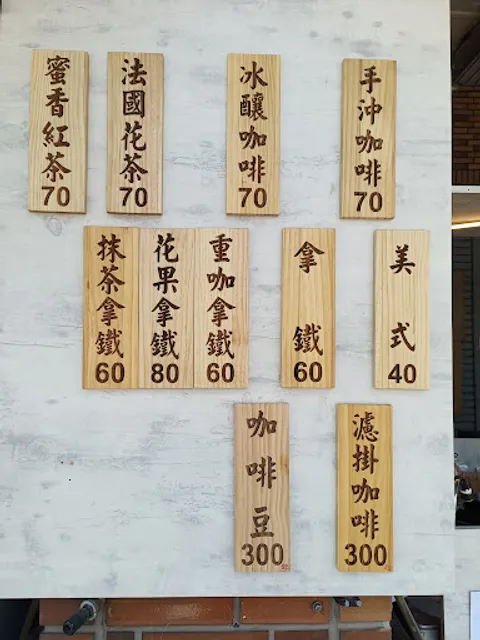 手沖咖啡 70
冰釀咖啡 70
法國花茶 70
蜜香紅茶 70
美式 40
拿鐵 60
重咖拿鐵 60
花果拿鐵 80
抹茶拿鐵 60
濾掛咖啡 300
咖啡豆 300